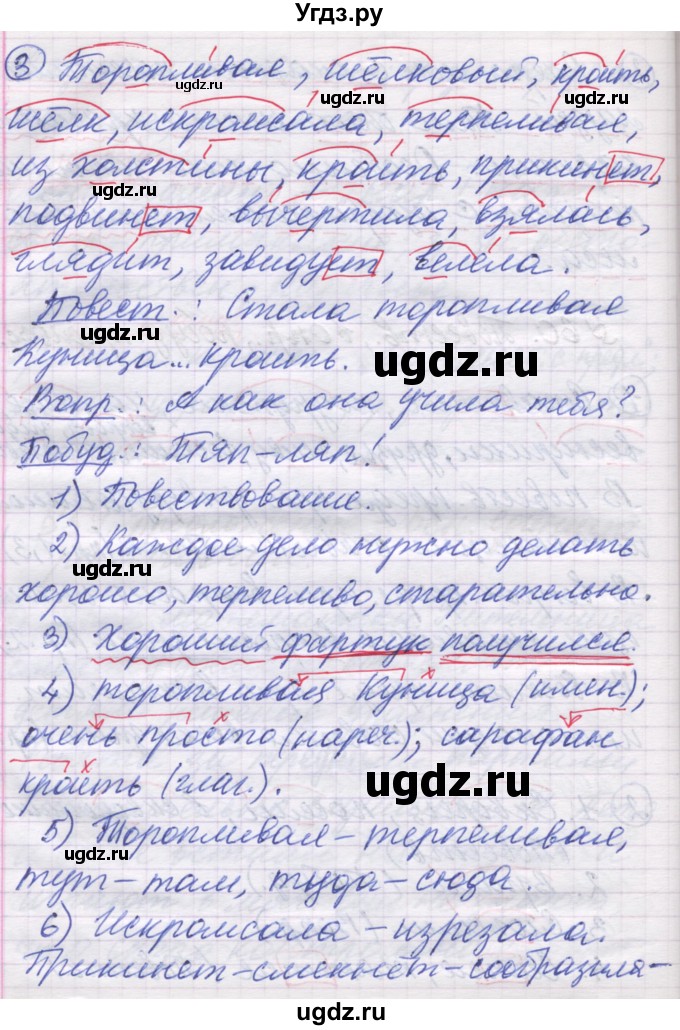 Угдз.ру
③ Торопливая, шёлковый, кроить,
ugdz.ru ugdz.ru ugdz.ru
шёлк, искромсала, терпеливая,
из холстины, кроить, прикинет,
ugdz.ru ugdz.ru
подвинет, вычертила, взялась,
ugdz.ru
глядит, завидует, велела.
Повест.: Стала торопливая
ugdz.ru
Куница... кроить.
ugdz.ru
Вопр.: А как она учила тебя?
Побуд.: Тяп-ляп!
1) Повествование.
2) Каждое дело нужно делать
ugdz.ru
хорошо, терпеливо, старательно.
3) Хороший фартук получился.
4) торопливая Куница (имен.);
очень просто (нареч.); сарафан
кроить (глаг.).
ugdz.ru
5) Торопливая – терпеливая,
ugdz.ru
тут – там, туда – сюда.
6) Искромсала – изрезала.
Прикинет – смекнёт – сообразила –
ugdz.ru